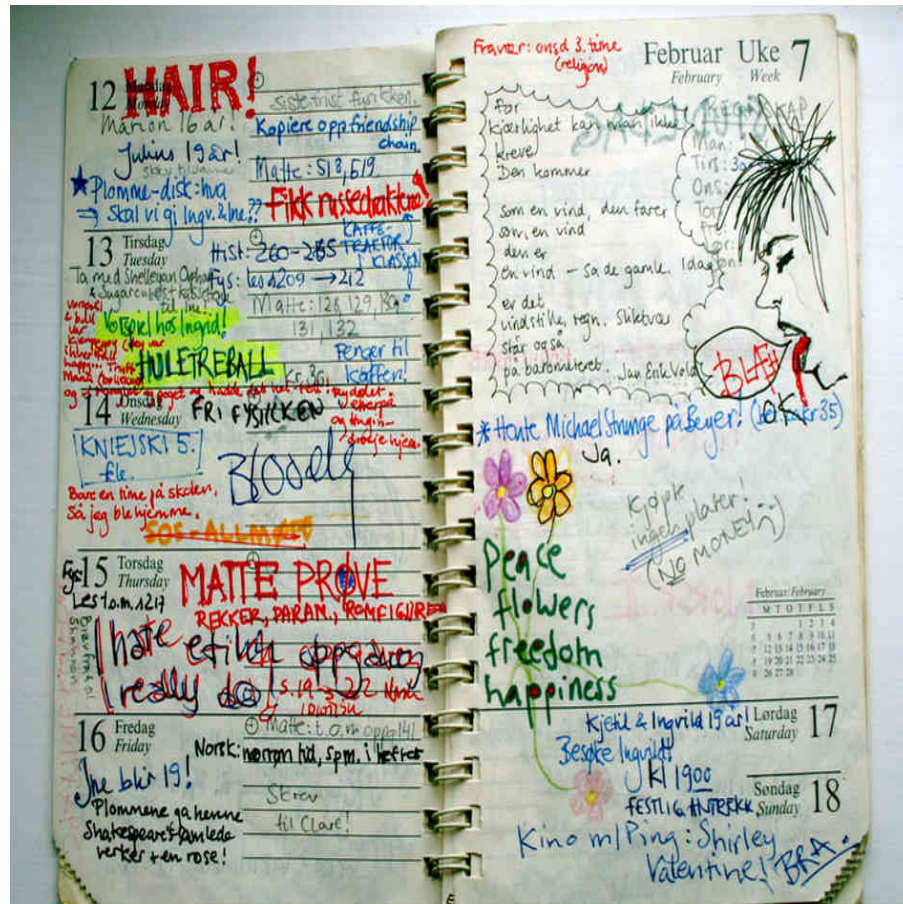 12 Mandag
Monday
HAIR!
Marion 16 år!
Julius 19 år!
Plomme-disk: hva
skal vi gi Ingv. & Ine??
siste frist fysikken.
Kopiere opp friendship
chain.
Matte: 518, 519.
Fikk russedraktene!
13 Tirsdag
Tuesday
Ta med Shelleyan Orphan
& Sugarcubes kassettene
til Ine.
Vorspiel hos Ingrid!
HULETREBALL
Hist: 260-265
KAFFE-
TRAKTER
I KLASSEN
Fys: les 209 → 212
Matte: 128, 129, 130
131, 132
Penger til
kaffen!
14 Onsdag
Wednesday
FRI FYSIKKEN
KNIEJSKI 5.
fle.
Bloody
Bare en time på skolen,
Så jeg ble hjemme.
SOS-ALLMØTE
15 Torsdag
Thursday
Fys:
Les t.o.m. 217
MATTE PRØVE
REKKER, PARAM., ROMFIGURER
I hate etikk oppgaven
I really do
s. 19-22 Norsk
16 Fredag
Friday
Ine blir 19!
Plommene ga henne
Shakespeares samlede
verker + en rose!
Matte: t.o.m. oppg 141
Norsk: norrøn tid, spm. i heftet
Skrev
til Clare!
Fravær: onsd 3. time
(religion)
Februar Uke 7
February Week
For
kjærlighet kan man ikke
kreve
Den kommer
som en vind, den farer
som en vind
den er
en vind – sa de gamle. I dag
er det
vindstille, regn. Slikt vær
står også
på barometeret. Jan Erik Vold
REGNSKAP
Man:
Tirs:
Ons:
Tor:
Fre:
Lør:
Søn:
BLÆH
OK
* Hente Michael Strunge på Beyer! (kr 35)
Ja.
Kjøpte
ingen plater!
(NO MONEY)
Peace
flowers
freedom
happiness
Februar/February
M T O T F L S
1 2 3 4
5 6 7 8 9 10 11
12 13 14 15 16 17 18
19 20 21 22 23 24 25
26 27 28
Kjetil & Ingvild 19 år!
Lørdag 17
Saturday
Besøke Ingvild!
kl 19 00
FESTLIG ANTREKK
Søndag 18
Sunday
Kino m/Ping: Shirley
Valentine! BRA.